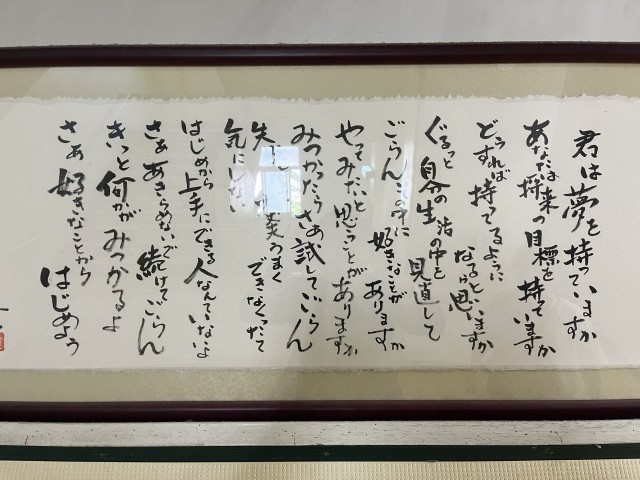 君は夢を持っていますか
あなたは将来の目標を持っていますか
どうすれば持てるように
なると思いますか
ぐるっと自分の生活の中を
見直して
ごらんこの中に
好きなことが
ありますか
やってみたいと思うことがありますか
みつかったらさあ試してごらん
失
うまく
できなくったって
気にしない
はじめから上手にできる人なんていないよ
さぁあきらめないで続けてごらん
きっと何かがみつかるよ
さぁ好きなことから
はじめよう